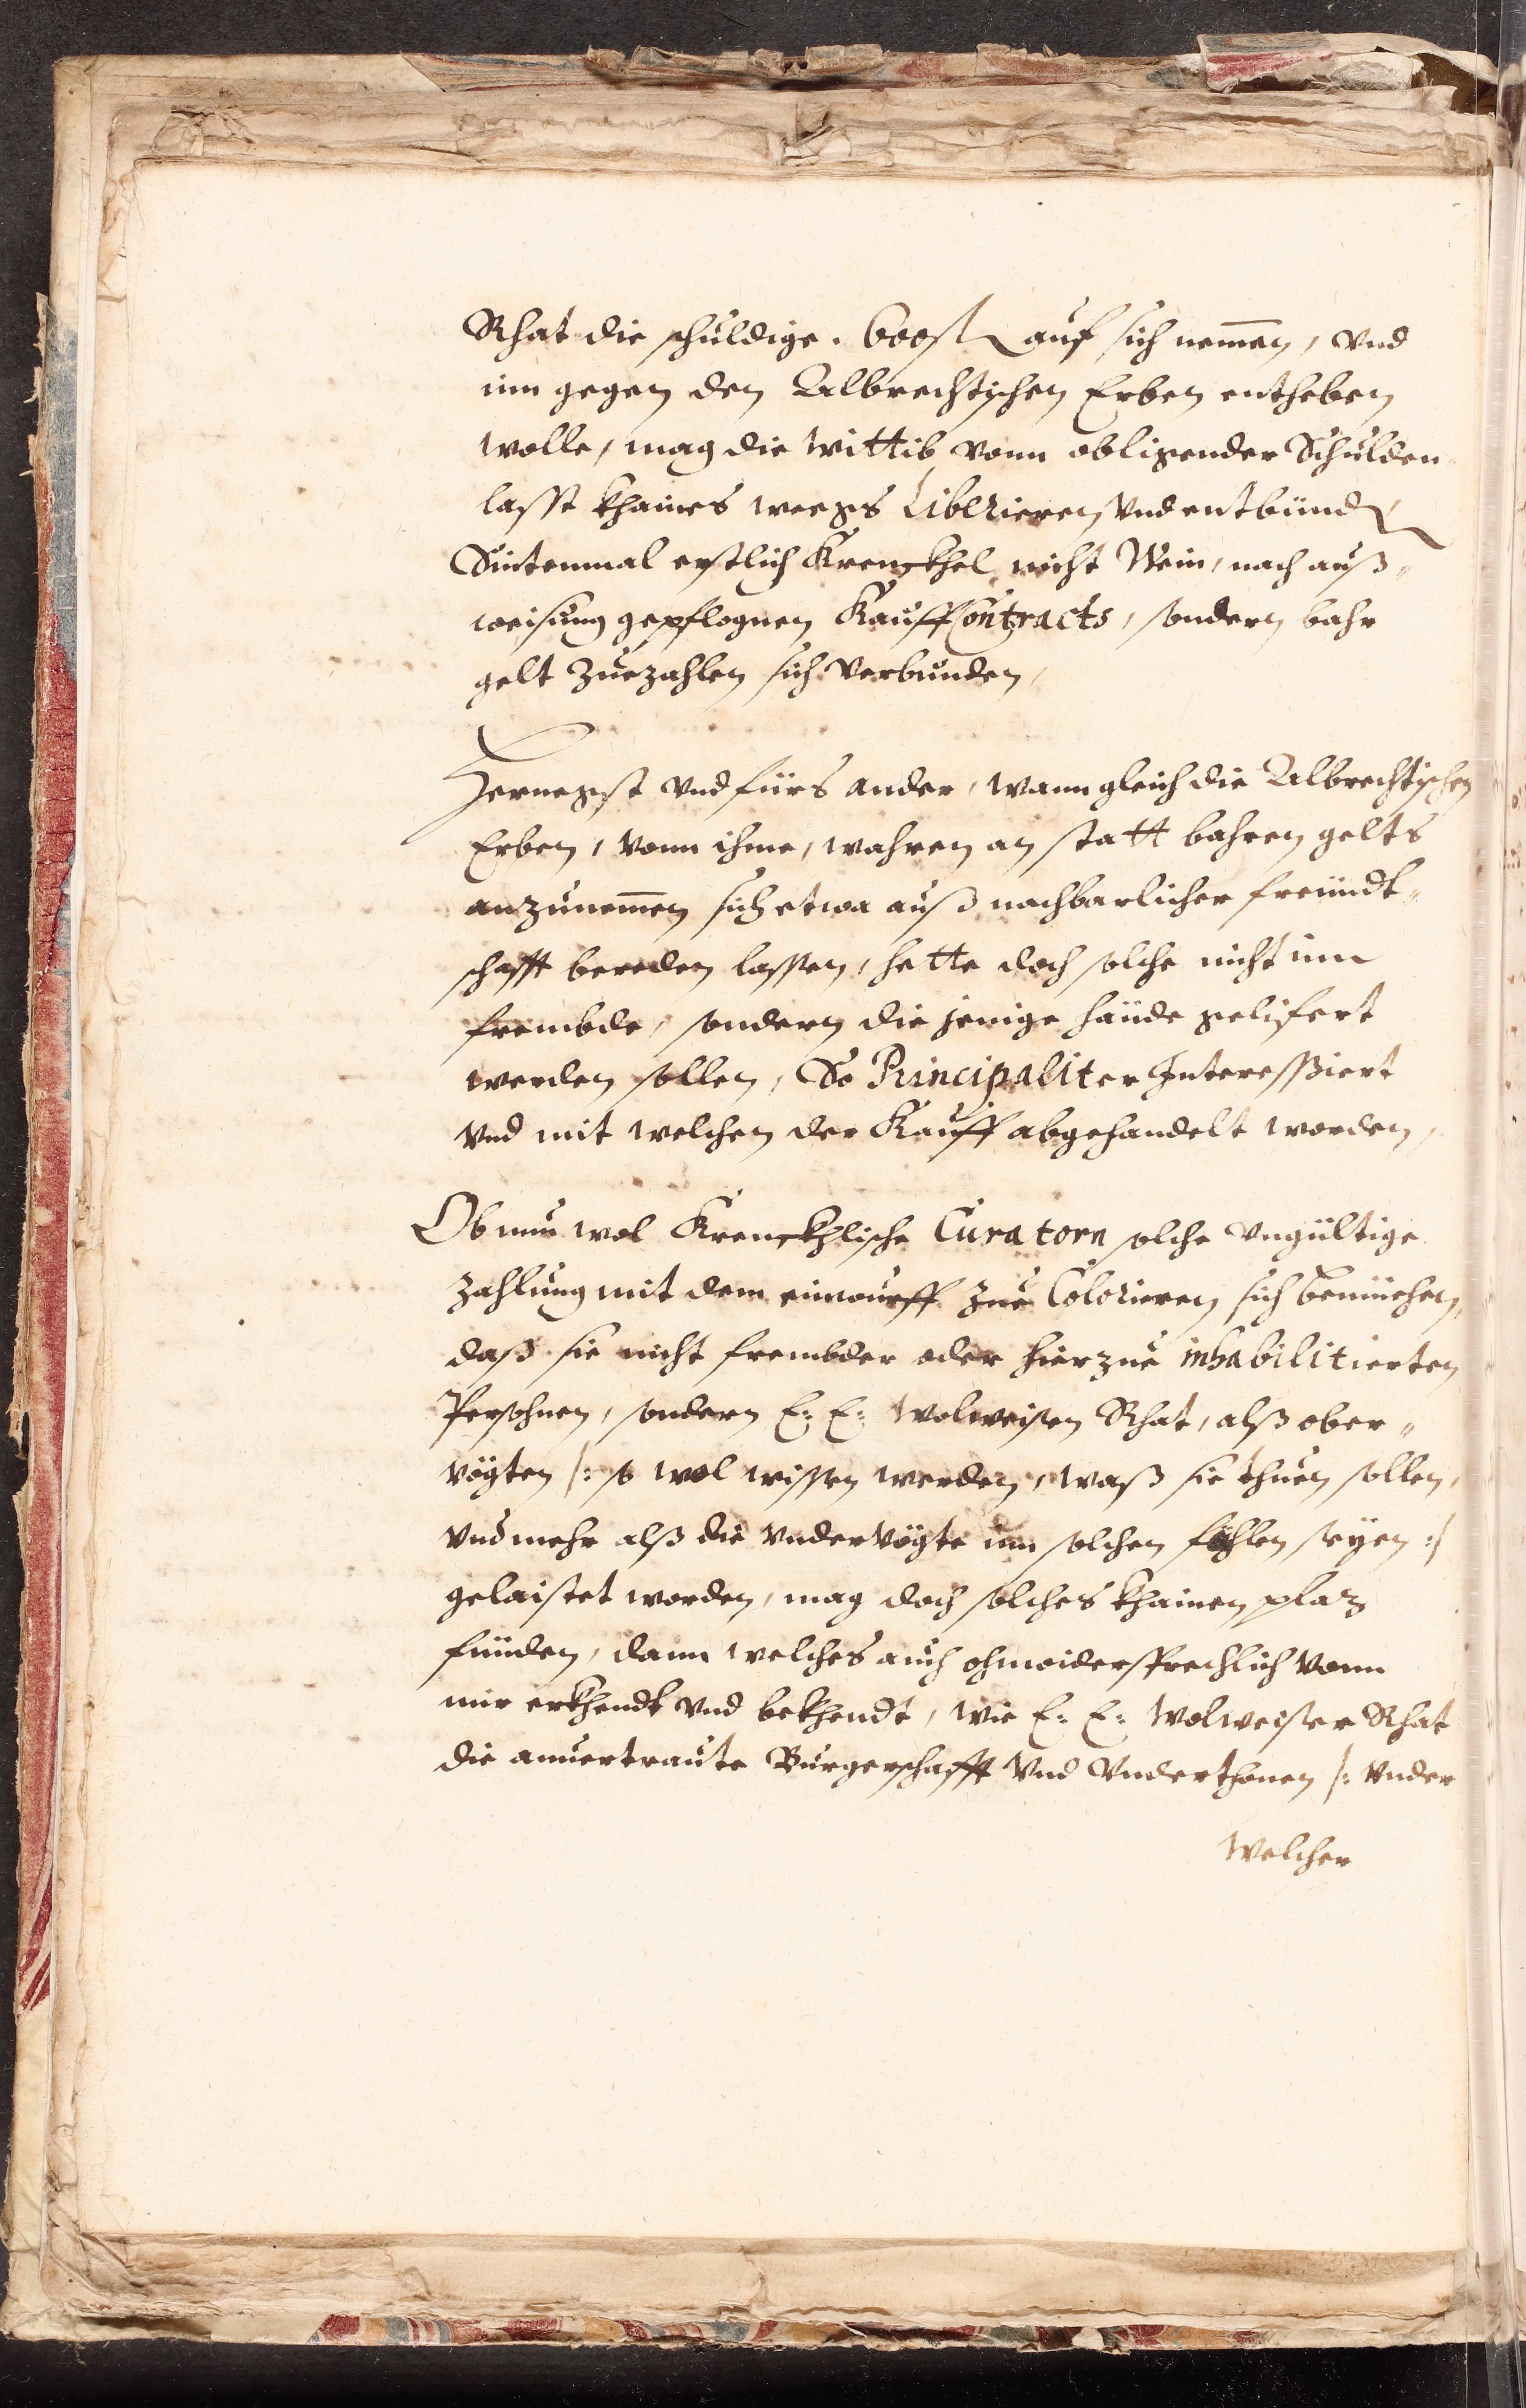 Rhat die schuldige . 600 fl auf sich nem̄en, vnd
inn gegen den Albrechtischen Erben entheben
wolle, mag die Wittib vonn obligender Schulden
lasst khaines weegs Liberieren vnd entbünden
Sintenmal erstlich Krenckhel nicht Wein, nach auß„
weisung gepflognen Kauff Contracts, sondern bahr
gelt Zuezahlen sich verbunden,
Hernegst vnd fürs ander, wann gleich die Albrechtischen
Erben, vonn ihme, wahren an statt bahren gelts
anzunem̄en sich etwa auß nachbarlicher freündt„
schafft bereden lassen, hette doch solche nicht inn
frembde, sondern die jenige hände gelifert
werden sollen, So Principaliter Interessiert
vnd mit welchen der Kauff abgehandelt worden,
Ob nun wol Krenckhlische Curatorn solche vngültige
Zahlung mit dem einwurff Zue Colorieren sich bemüehen,
daß sie nicht frembder oder hierzue inhabilitierten
Persohnen, sondern E: E: Wolweisen Rhat, alß ober„
vögten /: so wol wissen werden, waß sie thuen sollen,
vnd mehr alß die vndervögte inn solchen fählen seyen :/
gelaistet worden, mag doch solches khainen plaz
fünden, dann welches auch ohnwidersprechlich vonn
mir erkhendt vnd bekhendt, wie E: E: Wolweiser Rhat
die anuertraute Burgerschafft vnd Vnderthonen /: vnder
welcher